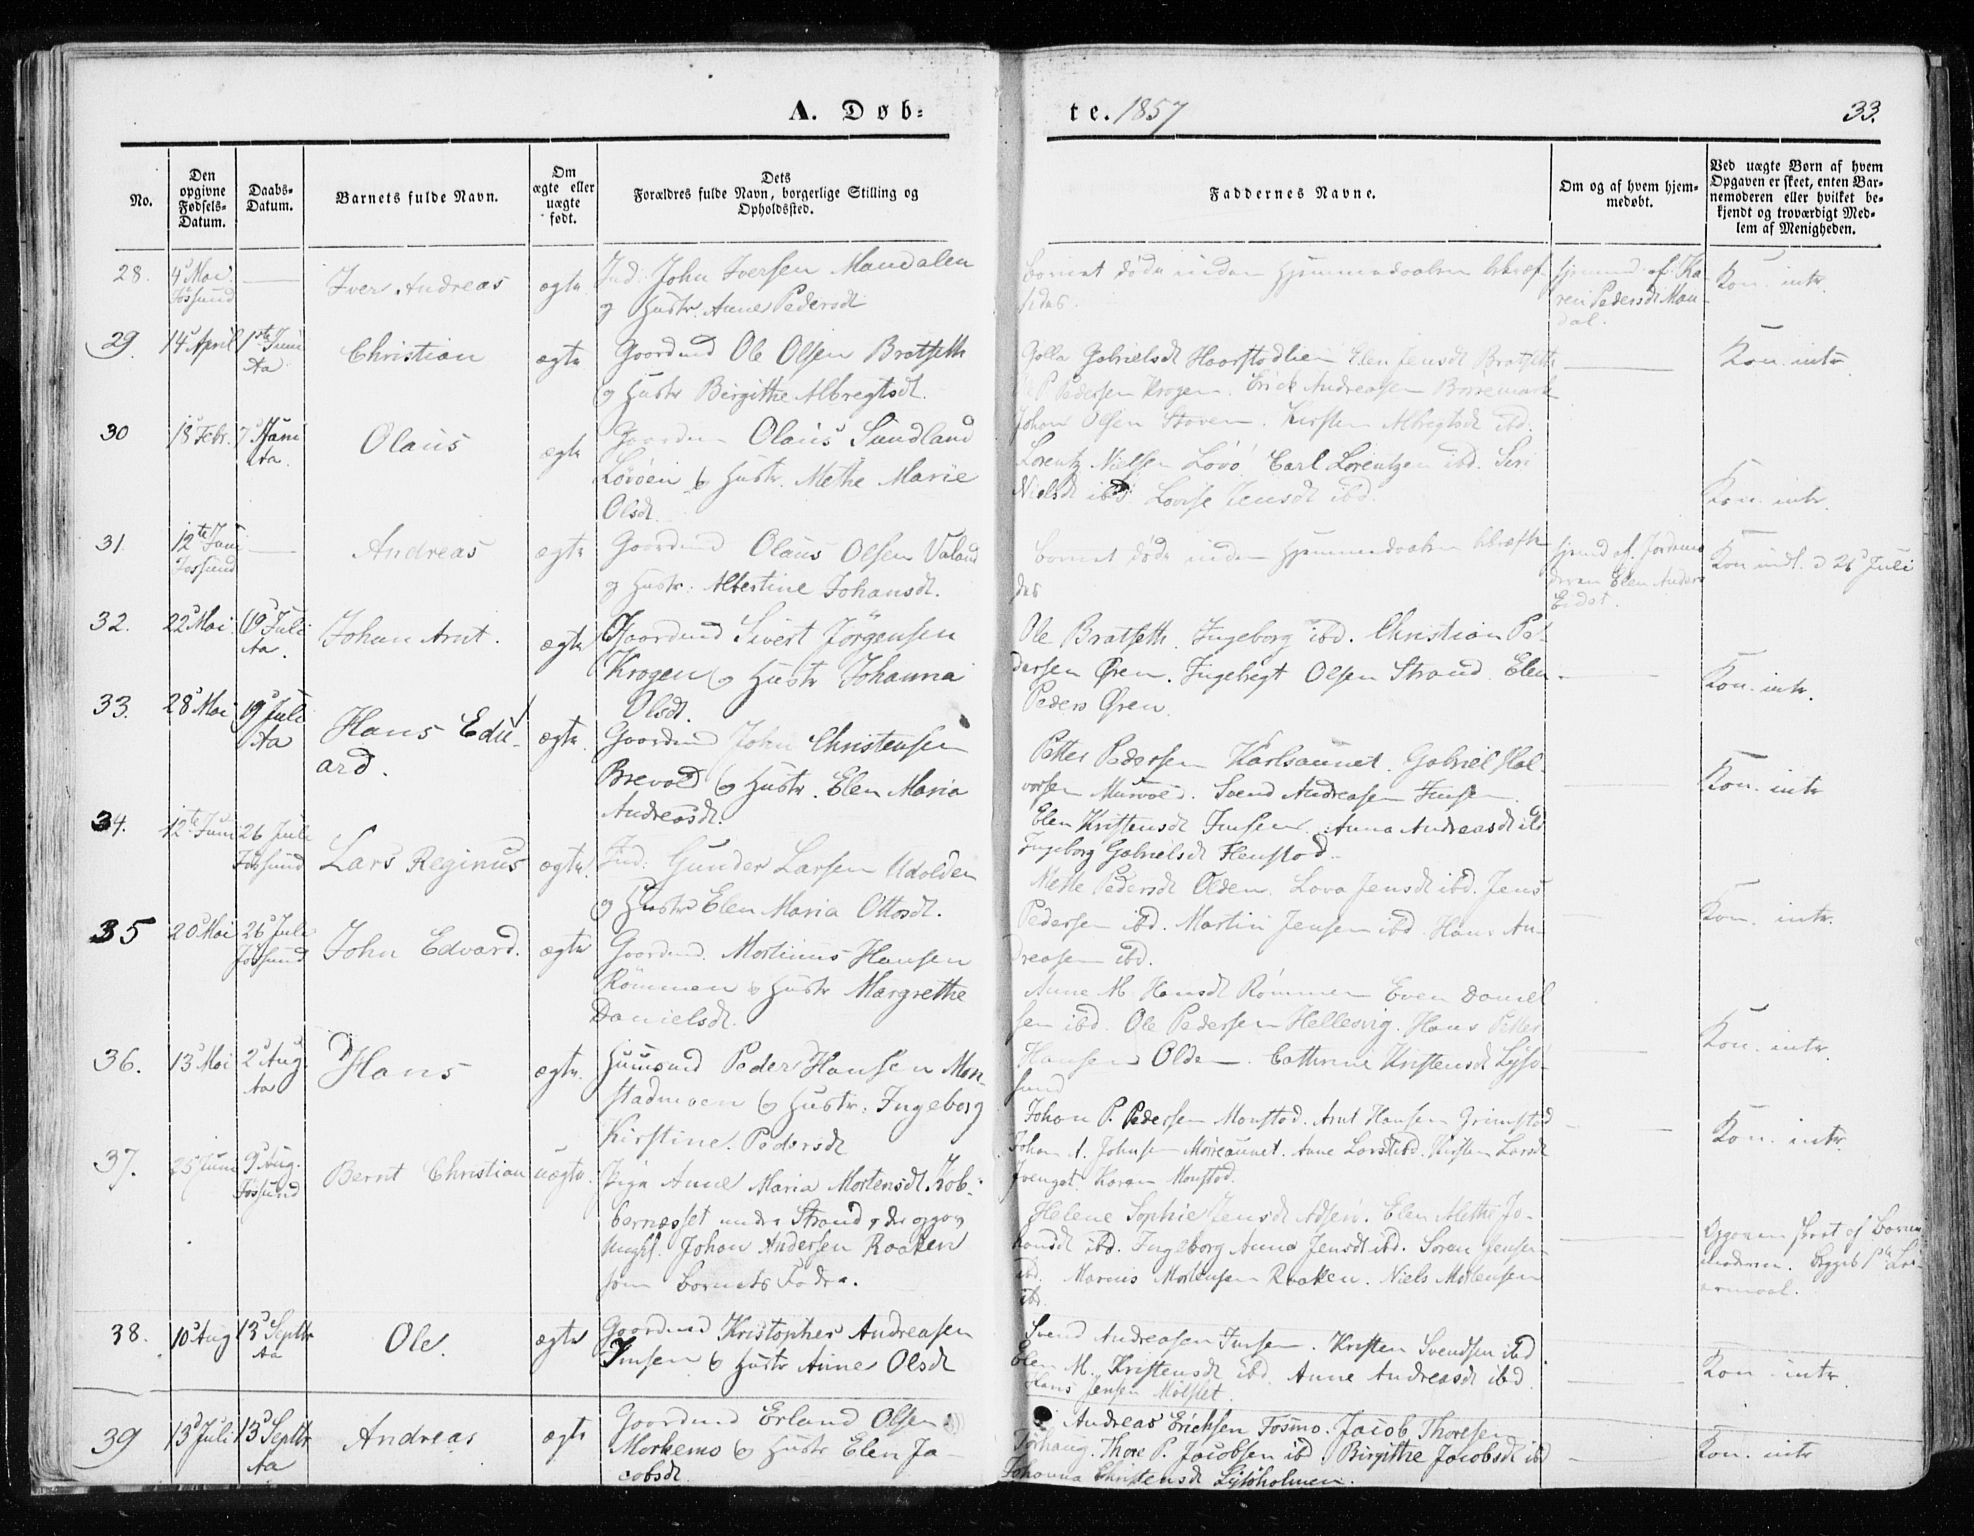 A. Døb-
te. 1857
33.
No.
Den
opgivne
Fødsels-
Datum.
Daabs-
Datum.
Barnets fulde Navn.
Om
ægte eller
uægte
født.
Dets
Forældres fulde Navn, borgerlige Stilling og
Opholdssted.
Faddernes Navne.
Om og af hvem hjem-
medøbt.
Ved uægte Børn af hvem
Opgaven er skeet, enten Bar-
nemoderen eller hvilket be-
kjendt og troværdigt Med-
lem af Menigheden.
28.
4 Mai
Jøssund
Iver Andreas
ægte
Ind: John Iversen Mandalen
og Hustr. Anne Pedersdt
Barnet døde inden Hjemmedaaben
Hjemmd. af Ka-
ren Pedersdt Man-
dal.
Kon. intr.
29.
14 April
1ste Juni
Aa
Christian
ægte
Gaardmd Ole Olsen Bratseth
og Hustr Birgithe Albregtsdt.
Golla Gabrielsdt Haarstadlien Elen Jensdt Bratseth
P Pedersen Krogen. Erick Andreasen Borremark
Johan Olsen Hoven. Kirsten Albregtsdt ibd.
Kon. intr
30
18 Febr.
7 Juni
Aa.
Olaus
ægte
Olaus Sundland
Løvøen og Hustr. Methe Marie
Olsdt.
Lorentz Nielsen Lovø Carl Lorentzen ibd. Siri
Nielsdt ibd. Lovise Jensdt ibd.
Kon. intr.
31
12te Juni
Jøssund
Andreas
ægte
Gaardmd Olaus Olsen Valand
og Hustr: Albertine Johansdt.
Barnet døde inden Hjemmedaaben
des
Hjemd af Jordemo
deren Elen Anders
Eidet.
Kon indl. d 26 Juli
32.
22 Mai.
19 Juli
Aa.
Johan Arnt.
ægte
Gaardmd Sivert Jørgensen
Krogen og Hustr Johanna
Olsdt.
Ole Bratseth. Ingeborg ibd. Christian Pe-
dersen Øren. Ingebregt Olsen Strand. Elen
Peders Øren.
Kon. intr.
33.
28 Mai
19 Juli
Aa
Hans Edu-
ard.
ægte.
Gaardmd John Christensen
Brevold og Hustr. Elen Maria
Andreasdt.
Petter Pedersen Karlsaunet. Gabriel Hal-
vorsen Murvold. Svend Andreasen Imsen.
Elen Kristensdt Imsen. Anna Andreasdt ibd
Ingeborg Gabrielsdt Flenstad.
Kon. intr
34.
12te Juni
26 Juli
Jøssund
Lars Reginus
ægte.
Ind: Gunder Larsen Udolden
og Hustr Elen Maria Ottosdt.
Mette Pedersdt Olden. Lova Jensdt ibd. Jens
Pedersen ibd. Martin Jensen ibd. Hans An-
dreasen ibd.
Kon. intr.
35
20 Mai
26 Juli
Jøssund
John Edvard.
ægte
Gaardmd. Martinus Hansen
Rømmen og Hustr Margrethe
Danielsdt.
Anne M. Hansdt Rømmen Even Daniel
sen ibd. Ole Pedersen Hellesvig. Hans Petter
Hansen Olden. Cathrine Kristensdt Lysø-
sund
Kon. intr.
36.
13 Mai
2 Aug
Aa
Hans
ægte.
Huusmd Peder Hansen Mon-
stadmoen og Hustr: Ingeborg
Kirstine Pedersdt
Johan P. Pedersen Monstad. Arnt Hansen Grimstad
Johan A. Johnsen Morreaunet. Anne Larsdt ibd. Kirsten Larsdt
Karen Monstad.
Kon. intr.
37.
25 Juni
9 Aug.
Jøssund
Bernt Christian
uægte.
Pige Anne Maria Mortensdt. Kob-
bernæsset under Strand, der opgav
Johan Andersen Raaken
som Barnets Fader.
Helene Sophie Jensdt Adsen. Elen Methe Jo-
hansdt ibd. Ingeborg Anna Jensdt ibd. Søren Jensen
ibd. Marius Mortensen Raaken. Niels Mortensen
ibd.
Opgaven skeet af Barne
moderen. Begges 1ste Lei-
ermaal.
38.
10 Aug
13 Septbr
Aa
Ole.
ægte
Gaardmd Kristopher Andreasen
Imsen og Hustr Anne Olsdt
Svend Andreasen Imsen. Kristen Svendsen ibd
Elen M. Kristensdt ibd. Anne Andreasdt ibd.
Hans Jensen
Kon. intr
39
13 Juli
13 Septbr
Aa
Andreas
ægte
Gaardmd Erland Olsen
Morkemo og Hustr Elen Ja-
cobsdt
Andreas Ericksen Fosmo. Jacob Thoresen
Thore P. Jacobsen ibd. Birgithe Jacobsdt ibd
Johanna Christensdt Lysøholmen.
Kon. intr